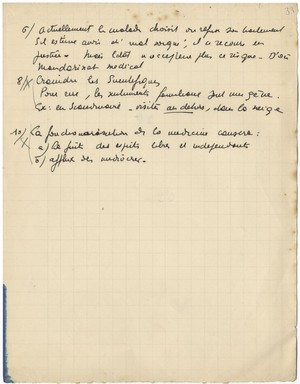 33
6) Actuellement le malade choisit ou refuse son traitement
S'il estime avoir été mal soigné, il a recours en
justice. Mais l'état n'acceptera pas ce risque. D'où
Mandarinat médical
8) Craindre les Scientifiques
Pour eux, les sentiments familiaux sont une gêne.
Ex: en Scandinavie - visite au dehors, dans la neige
10) La fonctionnarisation de la médecine causera :
a) La fuite des esprits libres et indépendants
b) afflux des médiocres.